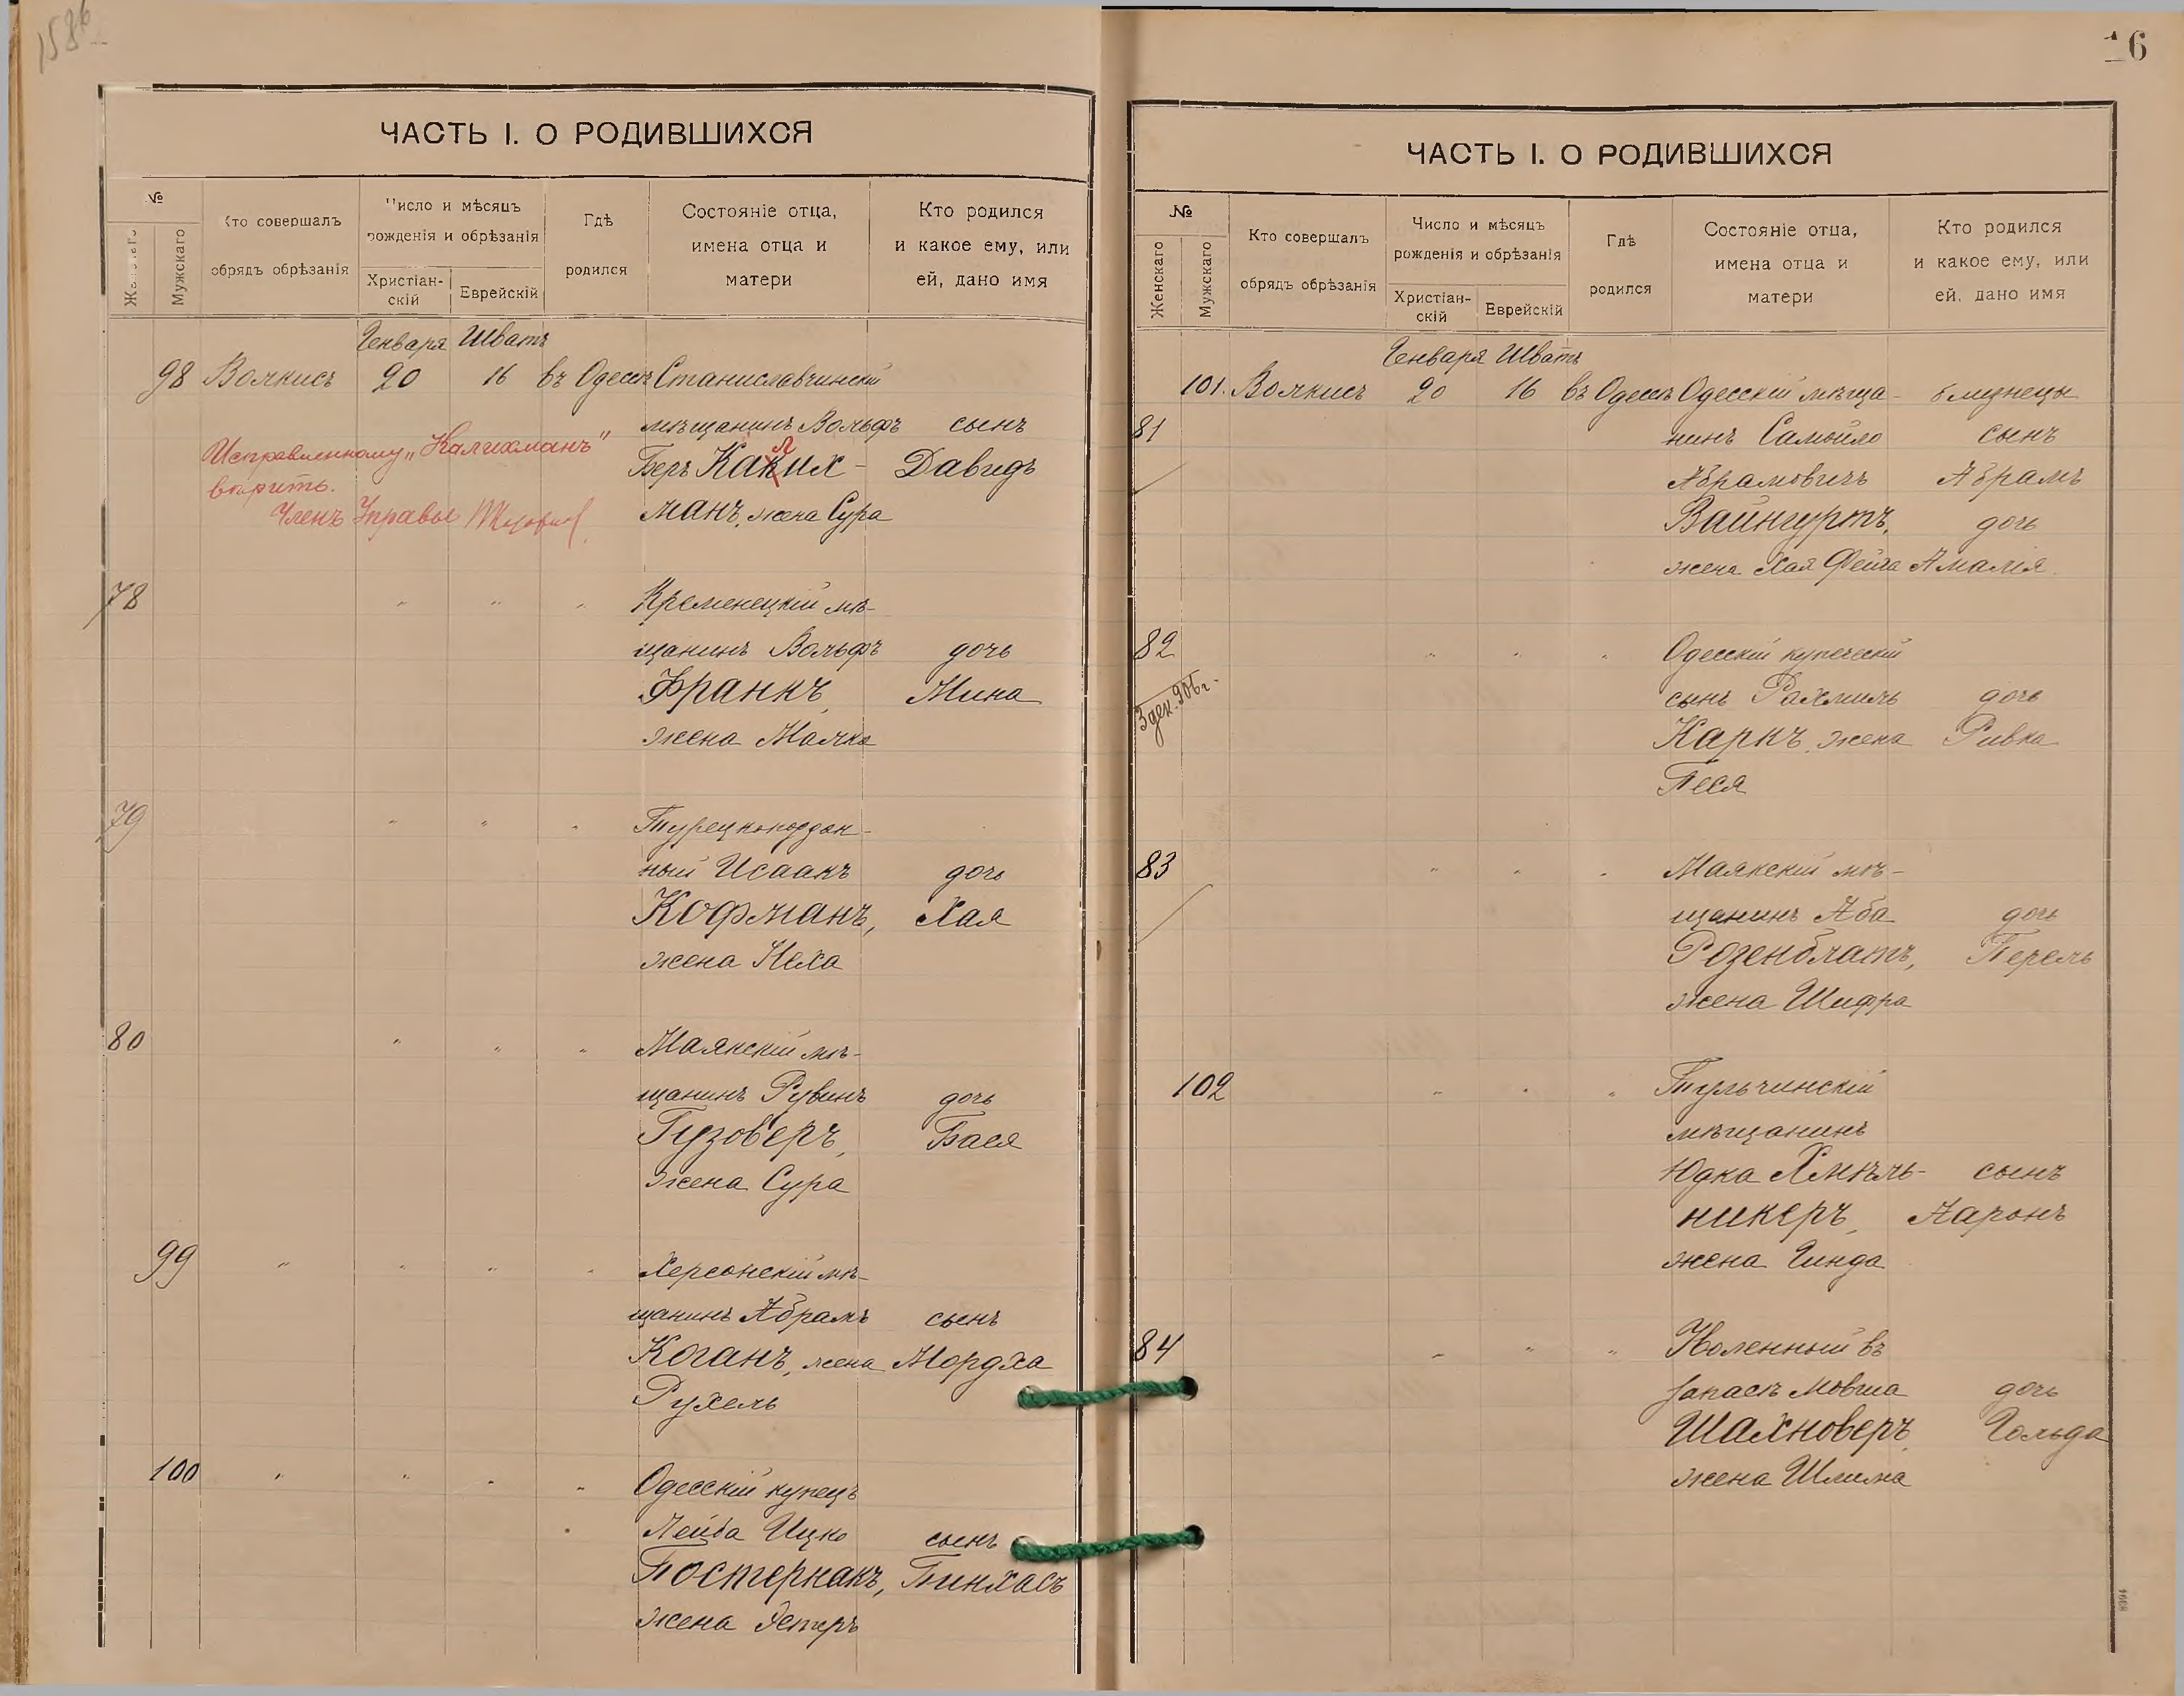 158
ЧАСТЬ I. О РОДИВШИХСЯ
№
Женскаго
Мужскаго
Кто совершалъ
обрядъ обрѣзанія
Число и мѣсяцъ
рожденія и обрѣзанія
Христіан-
скій
Еврейскій
Гдѣ
родился
Состояніе отца,
имена отца и
матери
Кто родился
и какое ему, или
ей, дано имя
Генваря Шватъ
98 Волкисъ 20 16 въ Одессѣ Станиславчинскій
мѣщанинъ Вольфъ сынъ
Беръ Каких- Давидъ
л
манъ, жена Сура
Исправленному „Калихманъ"
вѣрить.
Членъ Управы
78 " " " Кременецкій мѣ-
щанинъ Вольфъ дочь
Франкъ, Мина
жена Малка
79 " " " Турецкоподдан-
ный Исаакъ дочь
Кофманъ, Хая
жена Неха
80 " " " Маякскій мѣ-
щанинъ Рувинъ дочь
Гузоверъ, Бася
жена Сура
99 " " " " Херсонскій мѣ-
щанинъ Абрамъ сынъ
Коганъ, жена Мордха
Рухель
100 " " " " Одесскій купецъ
Лейба Ицко сынъ
Постернакъ, Пинхасъ
жена Эстеръ
16
ЧАСТЬ I. О РОДИВШИХСЯ
№
Женскаго
Мужскаго
Кто совершалъ
обрядъ обрѣзанія
Число и мѣсяцъ
рожденія и обрѣзанія
Христіан-
скій
Еврейскій
Гдѣ
родился
Состояніе отца,
имена отца и
матери
Кто родился
и какое ему, или
ей, дано имя
Генваря Шватъ
101. Волкисъ 20 16 въ Одессѣ Одесскій мѣща- близнецы
81 нинъ Самойло сынъ
Абрамовичъ Абрамъ
Вайнгуртъ, дочь
жена Хая Фейга Амалія
82 " " " Одесскій купеческій
сынъ Рахмиль дочь
3 дек. 906 г.
Каркъ, жена Ривка
Песя
83 " " " Маякскій мѣ-
щанинъ Аба дочь
Розенблатъ, Перель
жена Шифра
102 " " " Тульчинскій
мѣщанинъ
Юдка Хмѣль- сынъ
никеръ, Ааронъ
жена Гинда
84 " " " Уволенный въ
запасъ Мовша дочь
Шахноверъ, Гольда
жена Шлима